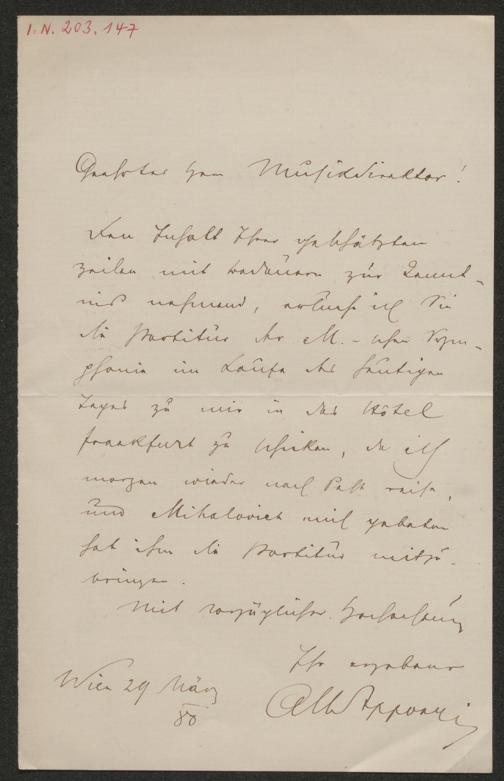 I.N. 203.147
Geehrter Herr Musikdirektor!
Den Inhalt Ihrer geschätzten
Zeilen mit Bedauern zur Kennt-
niß nehmend, ersuche ich Sie
die Partitur der M. - schen Sym-
phonie im Laufe des heutigen
Tages zu mir in das Hôtel
Frankfurt zu schicken, da ich
morgen wieder nach Pest reise,
und Mihalovich mich gebeten
hat ihm die Partitur mitzu-
bringen.
Mit vorzüglicher Hochachtung
Ihr ergebener
Alb Apponyi
Wien 29 März
80